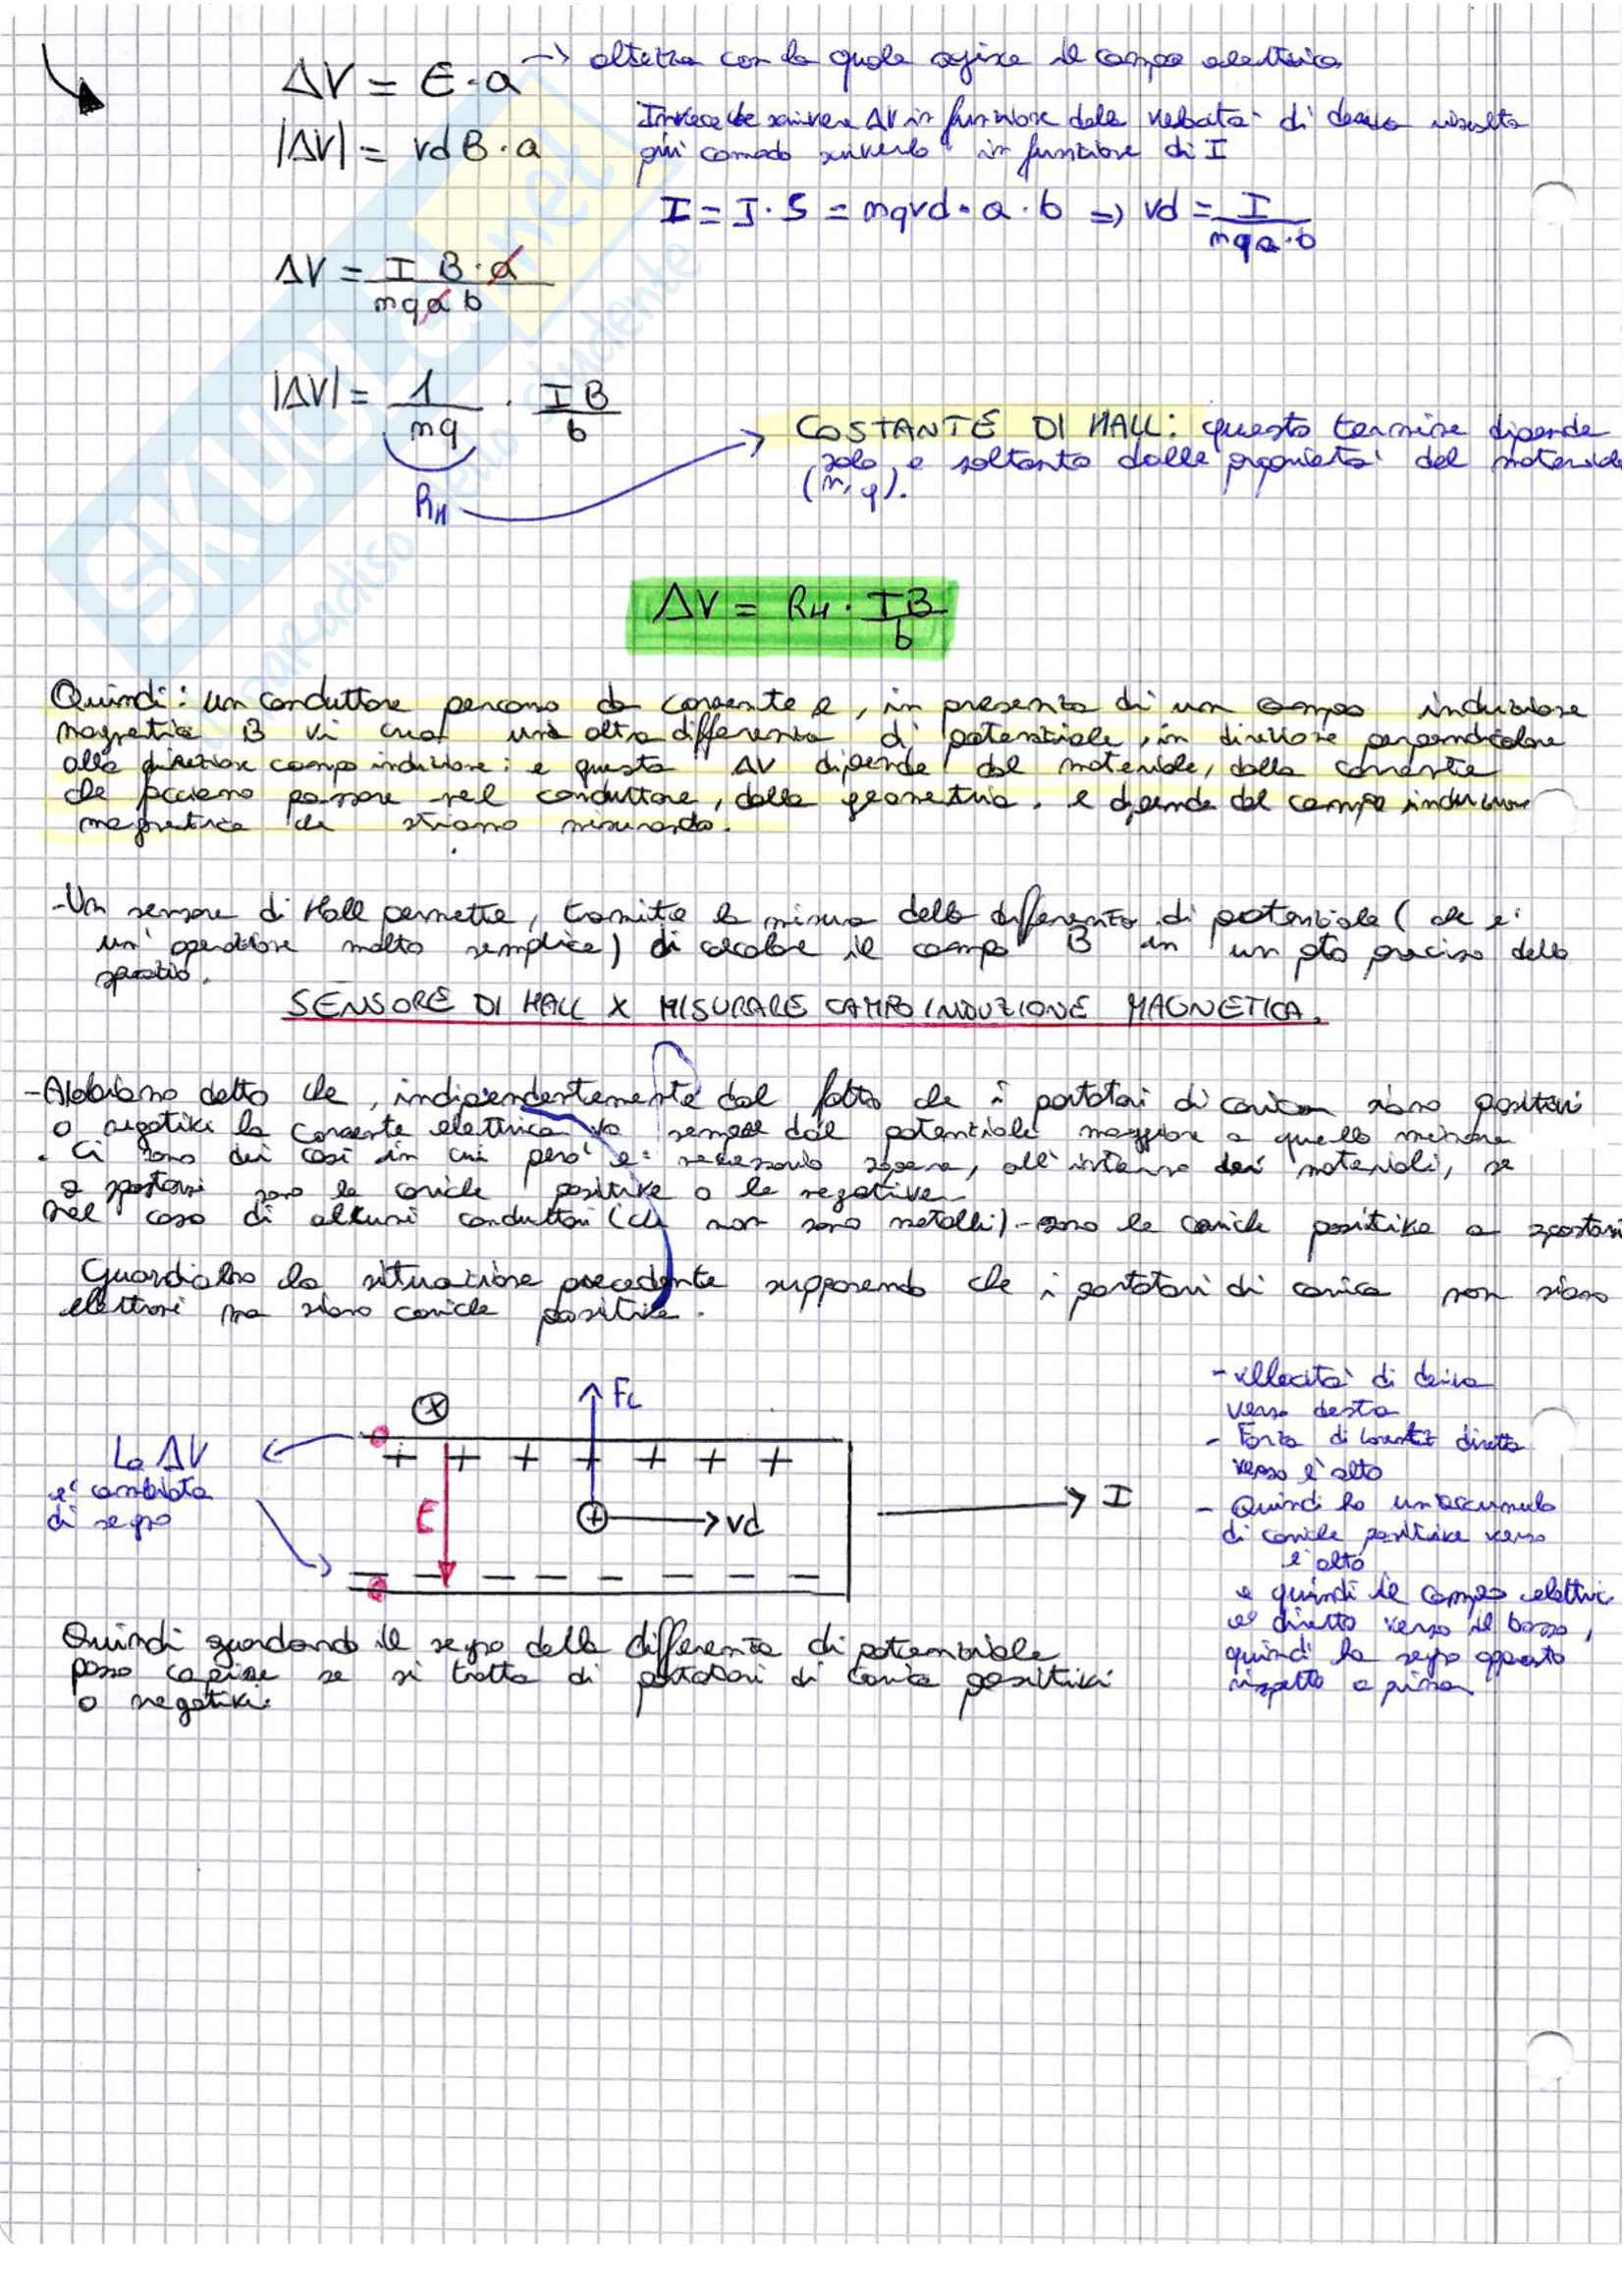 ΔV = E·a → altezza con la quale agisce il campo elettrico
|ΔV| = vd B·a
Invece che scrivere ΔV in funzione della velocità di deriva risulta
più comodo scriverlo in funzione di I
I = J·S = nqvd·a·b ⇒ vd = I / nqa·b
ΔV = I B·a / nqab
|ΔV| = 1/nq · IB/b
RH
COSTANTE DI HALL: questo termine dipende
solo e soltanto dalle proprietà del materiale
(n, q).
ΔV = RH · IB/b
Quindi: un conduttore percorso da corrente e, in presenza di un campo induzione
magnetica B vi crea una altra differenza di potenziale, in direzione perpendicolare
alla direzione campo induzione: e questa ΔV dipende dal materiale, dalla corrente
che facciamo passare nel conduttore, dalla geometria, e dipende dal campo induzione
magnetica che stiamo misurando.
-Un sensore di Hall permette, tramite la misura della differenza di potenziale (che è
un' operazione molto semplice) di calcolare il campo B in un pto preciso dello
spazio.
SENSORE DI HALL X MISURARE CAMPO INDUZIONE MAGNETICA.
-Abbiamo detto che, indipendentemente dal fatto che i portatori di carica siano positivi
o negativi la corrente elettrica va sempre dal potenziale maggiore a quello minore
. Ci sono dei casi in cui però è necessario sapere, all'interno dei materiali, se
a spostarsi sono le cariche positive o le negative
Nel caso di alcuni conduttori (che non sono metalli) sono le cariche positive a spostarsi
Guardiamo la situazione precedente supponendo che i portatori di carica non siano
elettroni ma siano cariche positive.
FL
La ΔV
è cambiata
di segno
+ + + + + + +
E
+ → vd
→ I
- velocità di deriva
verso destra
- Forza di Lorentz diretta
verso l'alto
- Quindi ho un accumulo
di cariche positive verso
l'alto
e quindi il campo elettric
è diretto verso il basso,
quindi ha segno opposto
rispetto a prima
Quindi guardando il segno della differenza di potenziale
posso capire se si tratta di portatori di carica positivi
o negativi
SKUOLA.net
il paradiso dello studente